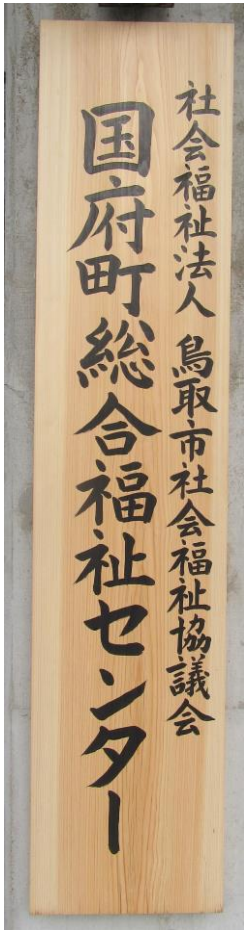 社会福祉法人 鳥取市社会福祉協議会
国府町総合福祉センター